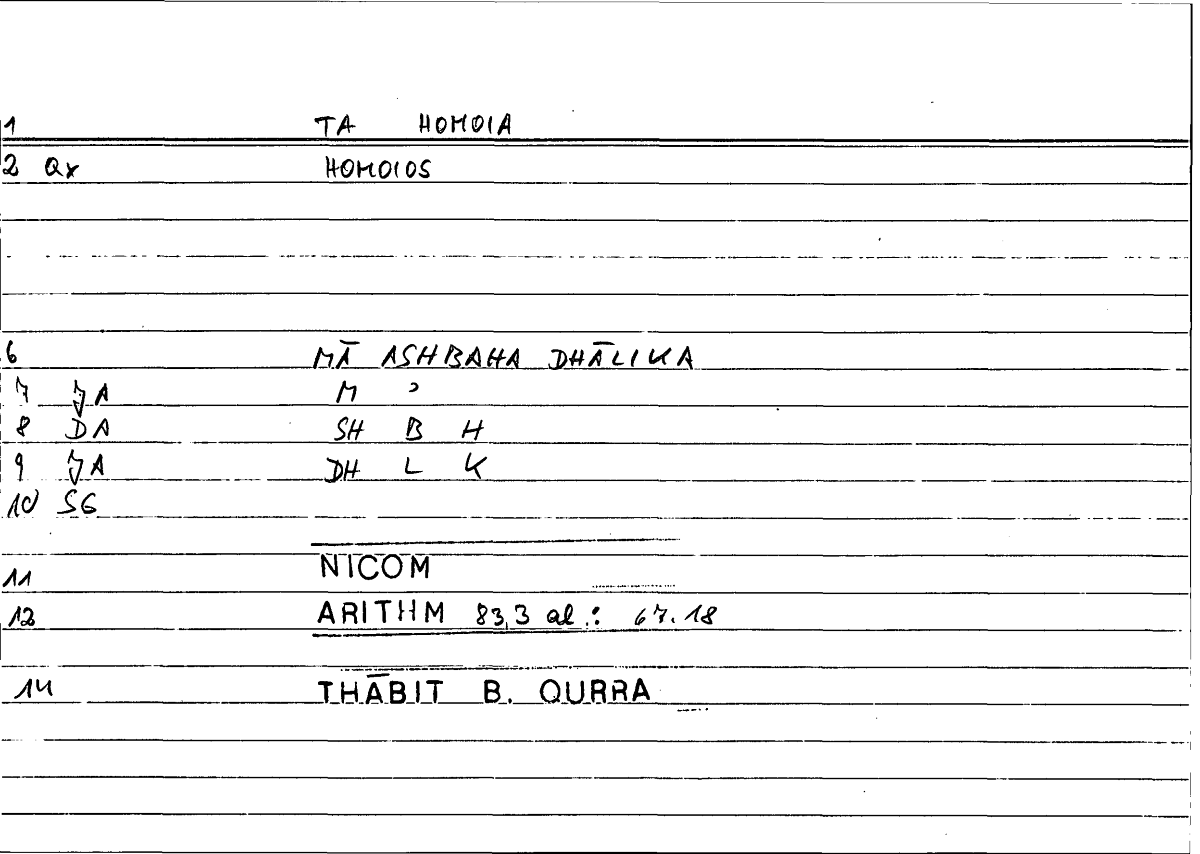 1 TA HOMOIA
2 Qx HOMOIOS
6 MĀ ASHBAHA DHĀLIKA
7 JA M ʾ
8 DA SH B H
9 JA DH L K
10 SG
11 NICOM
12 ARITHM 83,3 al.: 67.18
14 THĀBIT B. QURRA